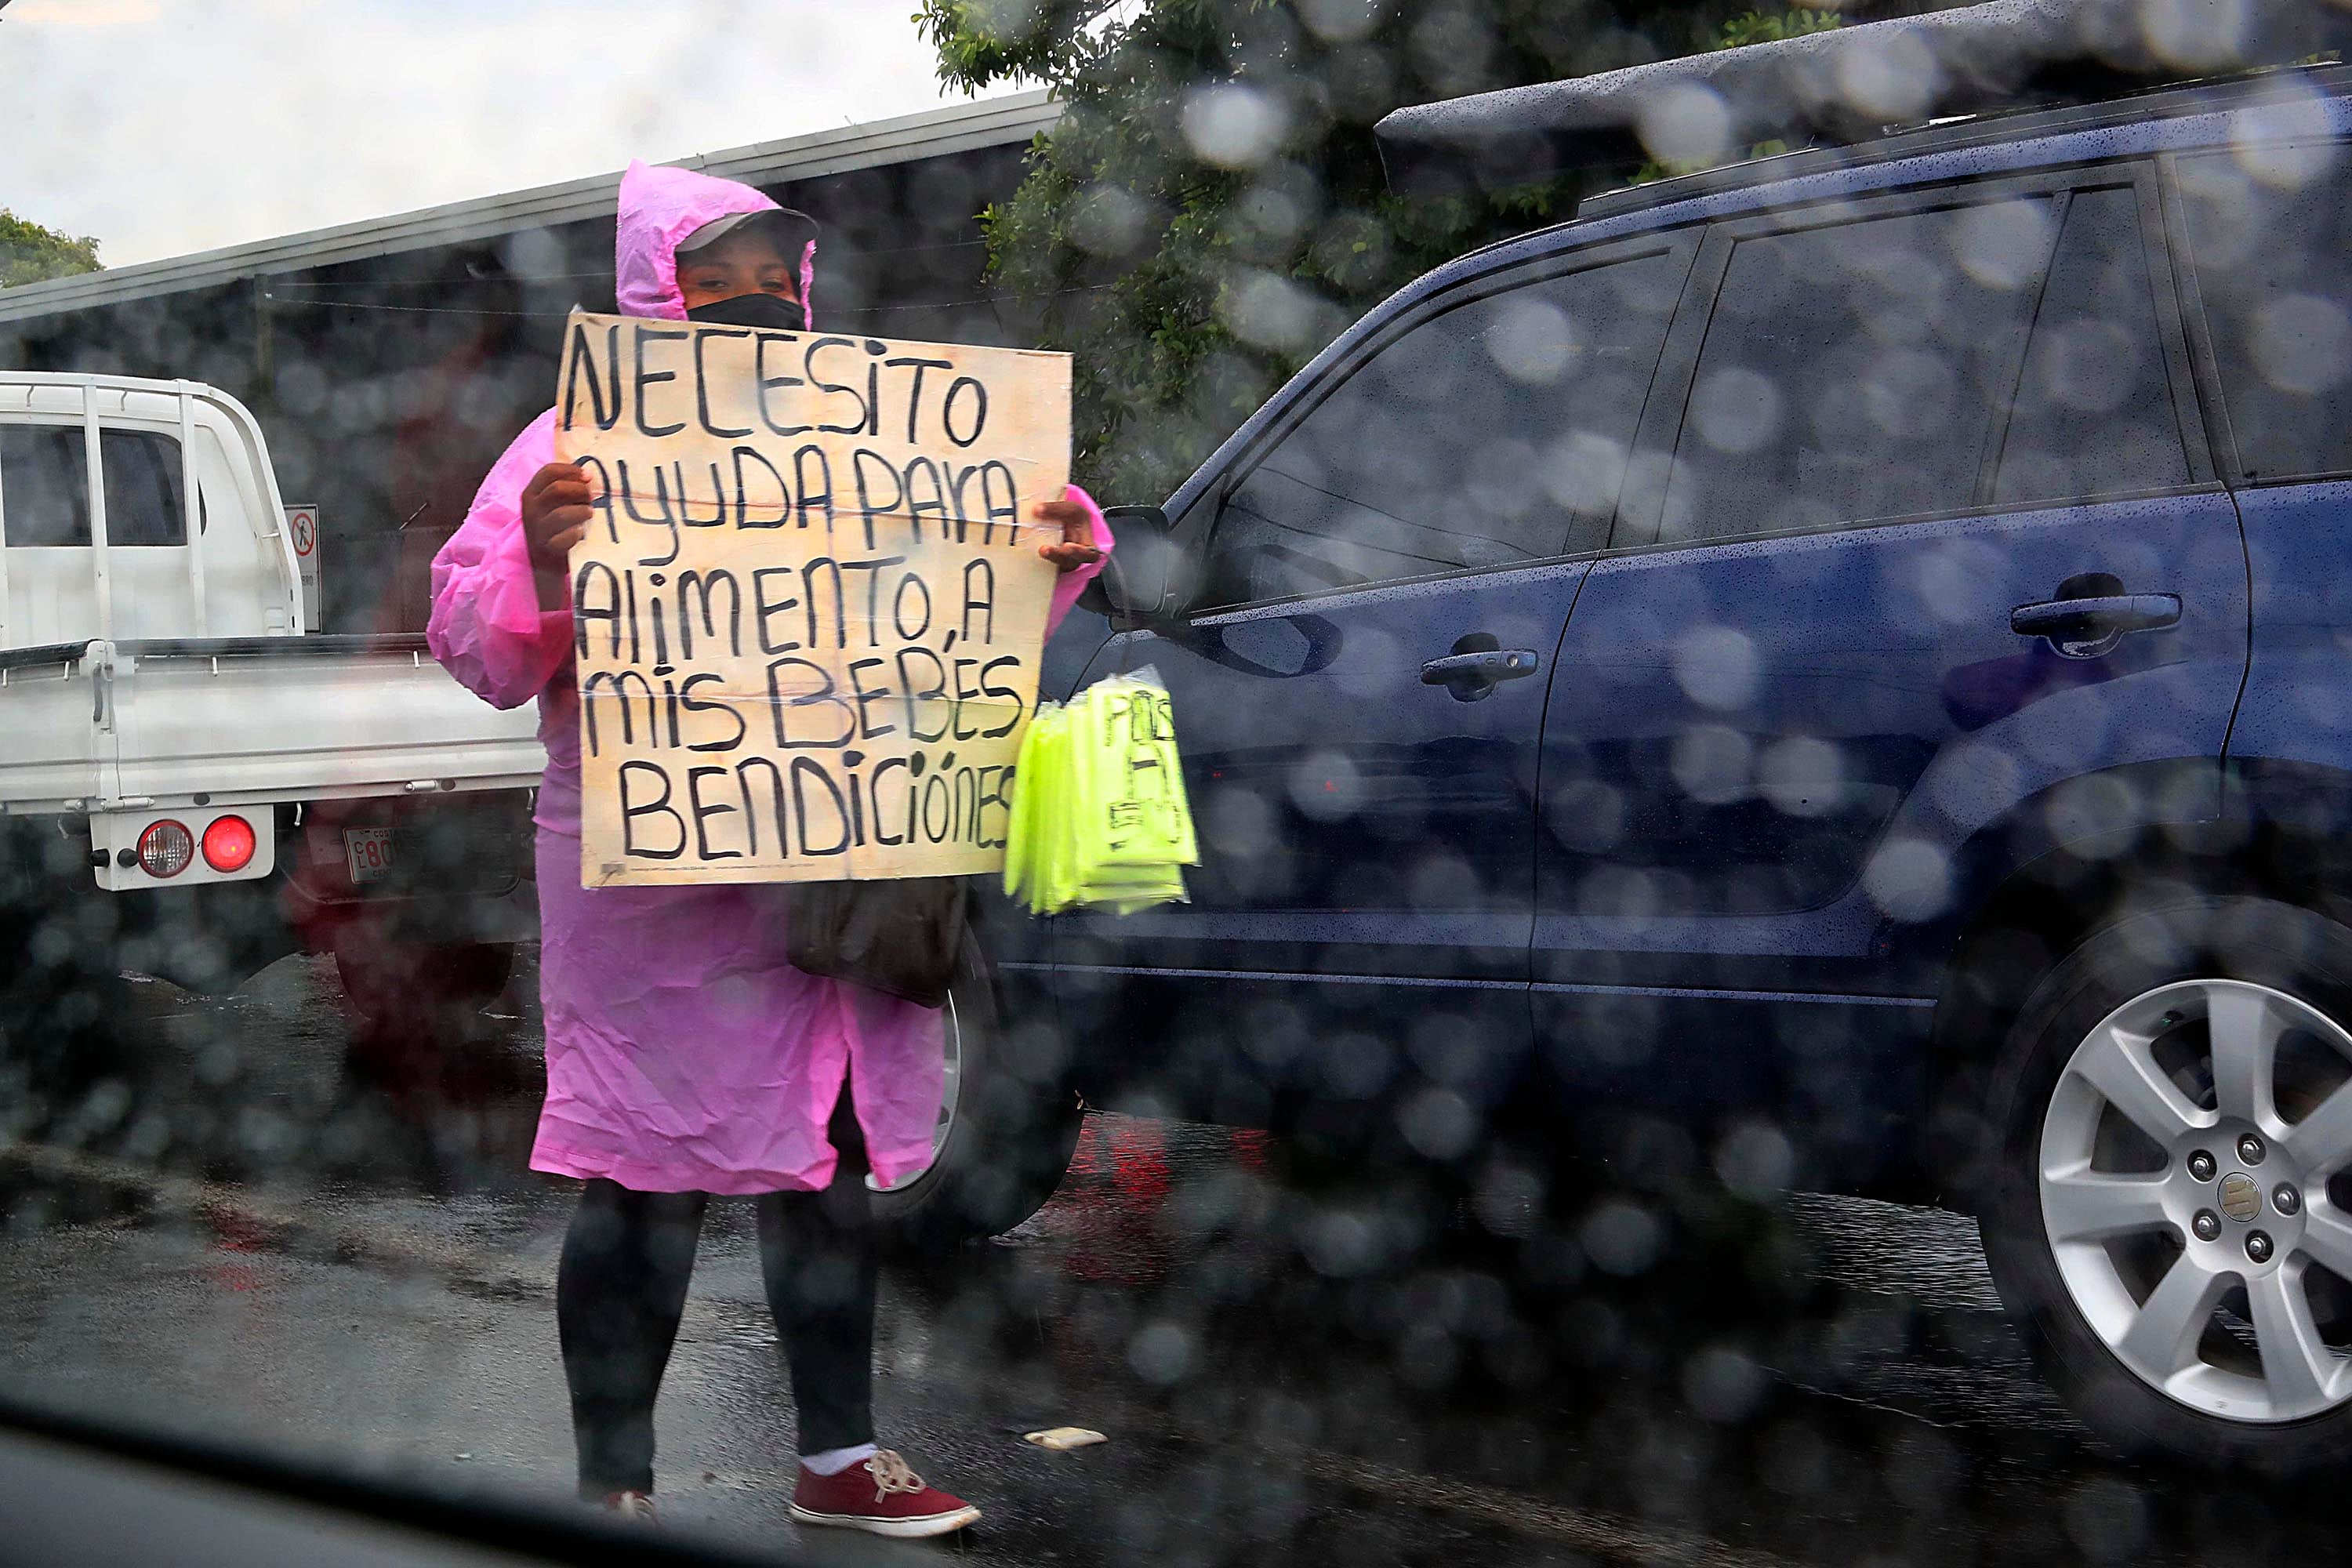 NECESiTO
AyUDA PARA
AliMENTO, A
MiS BEBÉS
BENDiCiÓNES
A
COSTA
CL 80